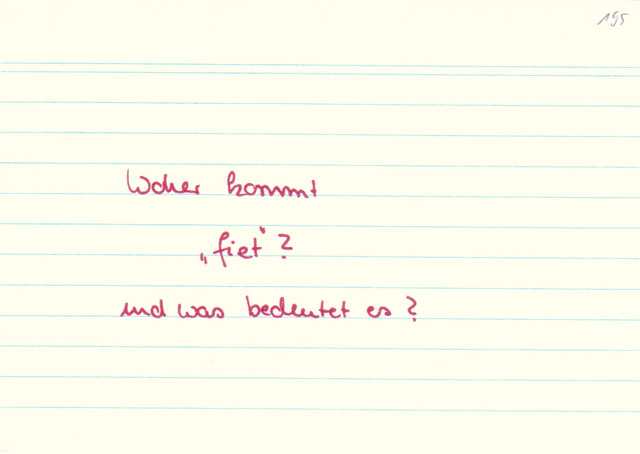 195
Woher kommt
„fiet“?
und was bedeutet es?